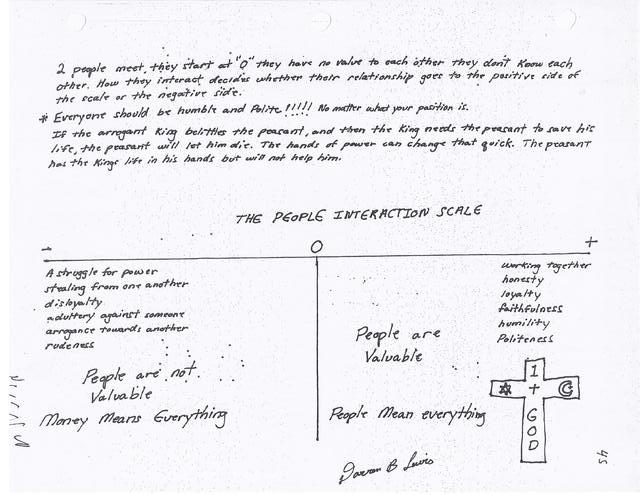 2 people meet, they start at "0" they have no value to each other they don't know each
other. How they interact decides whether their relationship goes to the positive side of
the scale or the negative side.
* Everyone should be humble and Polite!!!!! No matter what your position is.
If the arrogant King belittles the peasant, and then the King needs the peasant to save his
life, the peasant will let him die. The hands of power can change that quick. The peasant
has the Kings life in his hands but will not help him.
THE PEOPLE INTERACTION SCALE
- 0 +
A struggle for power
stealing from one another
disloyalty
adultery against someone
arrogance towards another
rudeness
People are not
Valuable
Money Means Everything
working together
honesty
loyalty
faithfulness
humility
Politeness
People are
Valuable
People Mean everything
1
+
G
O
D
Darren B Lewis
45